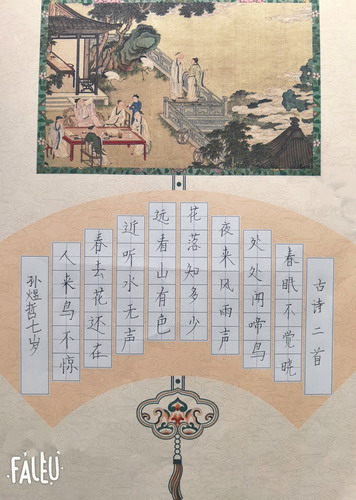 古诗二首
春眠不觉晓
处处闻啼鸟
夜来风雨声
花落知多少
远看山有色
近听水无声
春去花还在
人来鸟不惊
孙煜哲七岁
FALEU